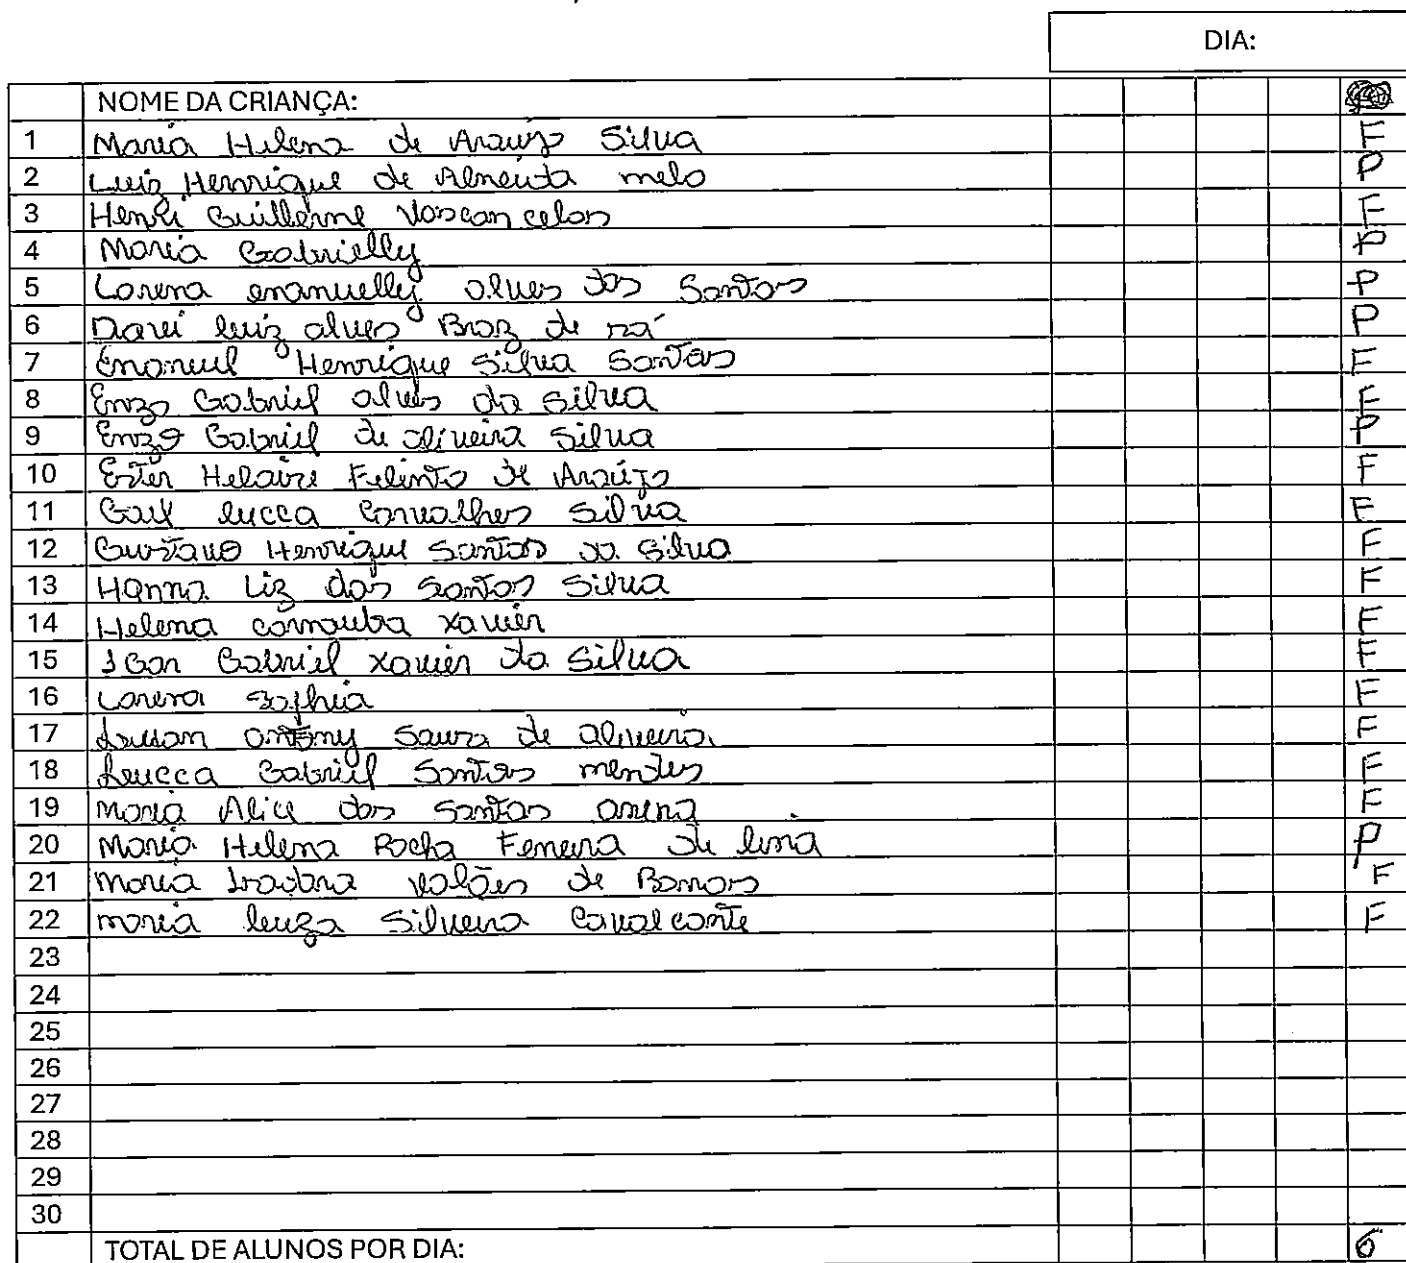 DIA:
NOME DA CRIANÇA:
1 Maria Helena de Araujo Silva F
2 Luiz Henrique de Almeida melo P
3 Henri Guilherme Vasconcelos F
4 Maria Gabrielly P
5 Lorena emanuelly alves dos Santos P
6 Davi luiz alves Braz de Sá P
7 Emanuel Henrique Silva Santos F
8 Enzo Gabriel alves da Silva F
9 Enzo Gabriel de oliveira Silva P
10 Ester Helaire Felinto de Araújo F
11 Gael lucca Carvalhes Silva F
12 Gustavo Henrique Santos da Silva F
13 Hanna Liz dos Santos Silva F
14 Helena carnauba xavier F
15 Gabriel xavier da Silva F
16 Lorena Sophia F
17 antony Souza de oliveira F
18 Lucca Gabriel Santos mendes F
19 Maria Alice dos Santos F
20 Maria Helena Rocha Ferreira de lima P
21 Maria de Barros F
22 maria luiza Silveira Cavalcante F
23
24
25
26
27
28
29
30
TOTAL DE ALUNOS POR DIA: 6